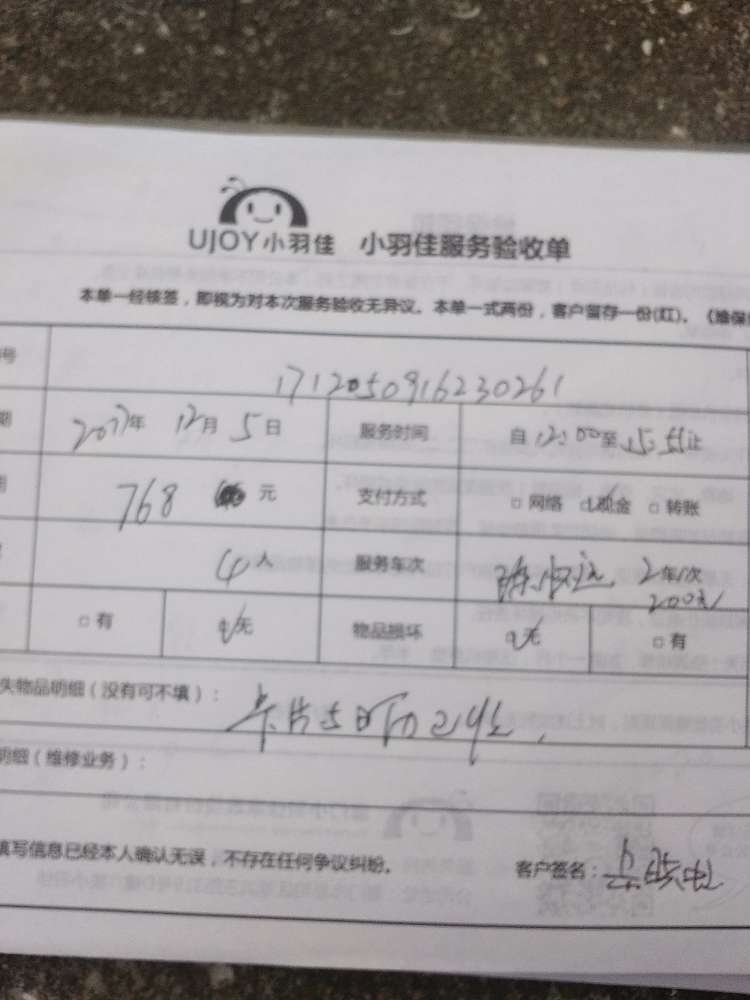 UJOY小羽佳 小羽佳服务验收单
本单一经核签，即视为对本次服务验收无异议。本单一式两份，客户留存一份(红)。（维保
号 1712050916230261
期 2017年 12月 5日 服务时间 自12:00至15:55止
用 768 元 支付方式 □网络 现金 □转账
4人 服务车次 2车/次
200元
□有 无 物品损坏 无 □有
失物品明细（没有可不填）： 卡片与日历已收
明细（维修业务）：
填写信息已经本人确认无误，不存在任何争议纠纷。 客户签名：